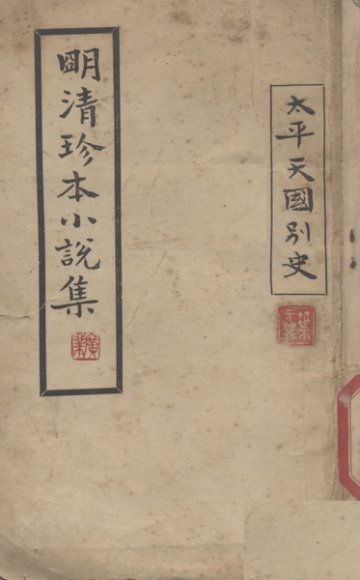 太平天國别史
明清珍本小說集